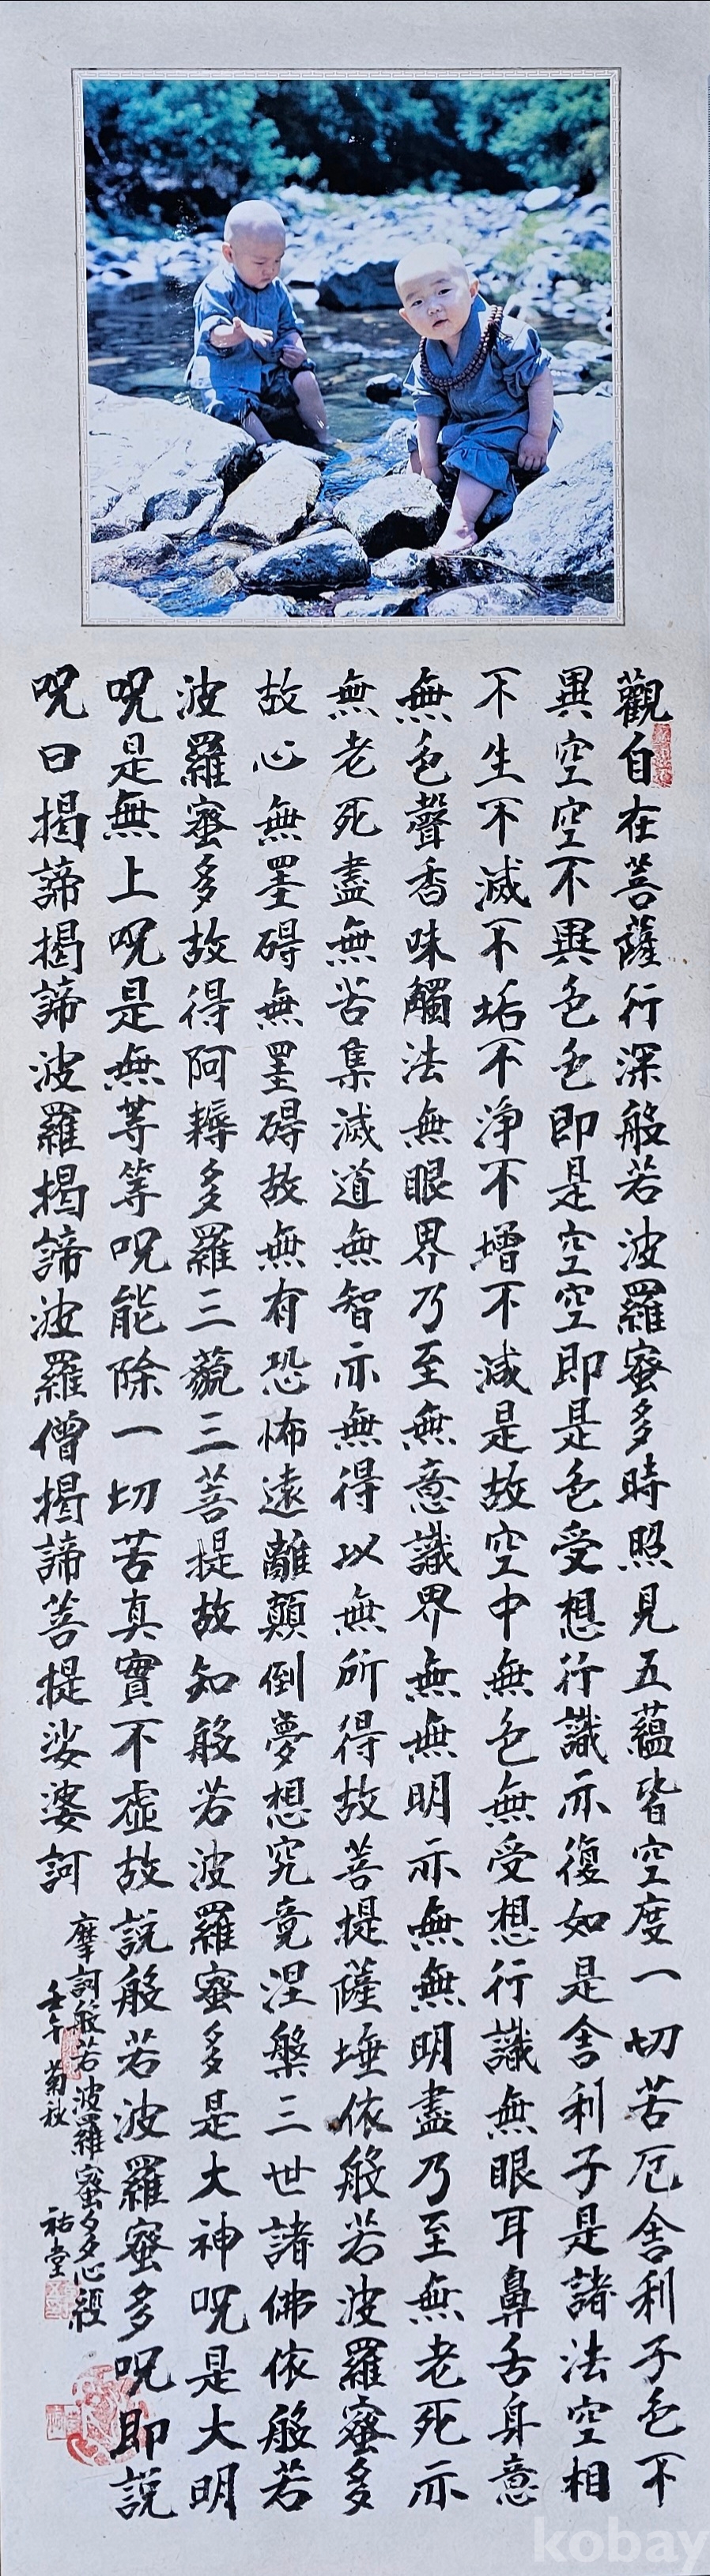 觀自在菩薩行深般若波羅蜜多時照見五蘊皆空度一切苦厄舍利子色不
異空空不異色色即是空空即是色受想行識亦復如是舍利子是諸法空相
不生不滅不垢不淨不增不減是故空中無色無受想行識無眼耳鼻舌身意
無色聲香味觸法無眼界乃至無意識界無無明亦無無明盡乃至無老死亦
無老死盡無苦集滅道無智亦無得以無所得故菩提薩埵依般若波羅蜜多
故心無罣碍無罣碍故無有恐怖遠離顛倒夢想究竟涅槃三世諸佛依般若
波羅蜜多故得阿耨多羅三藐三菩提故知般若波羅蜜多是大神呪是大明
呪是無上呪是無等等呪能除一切苦真實不虛故說般若波羅蜜多呪即說
呪曰揭諦揭諦波羅揭諦波羅僧揭諦菩提娑婆訶
摩訶般若波羅蜜多心經
壬午 菊秋 祐堂
kobay